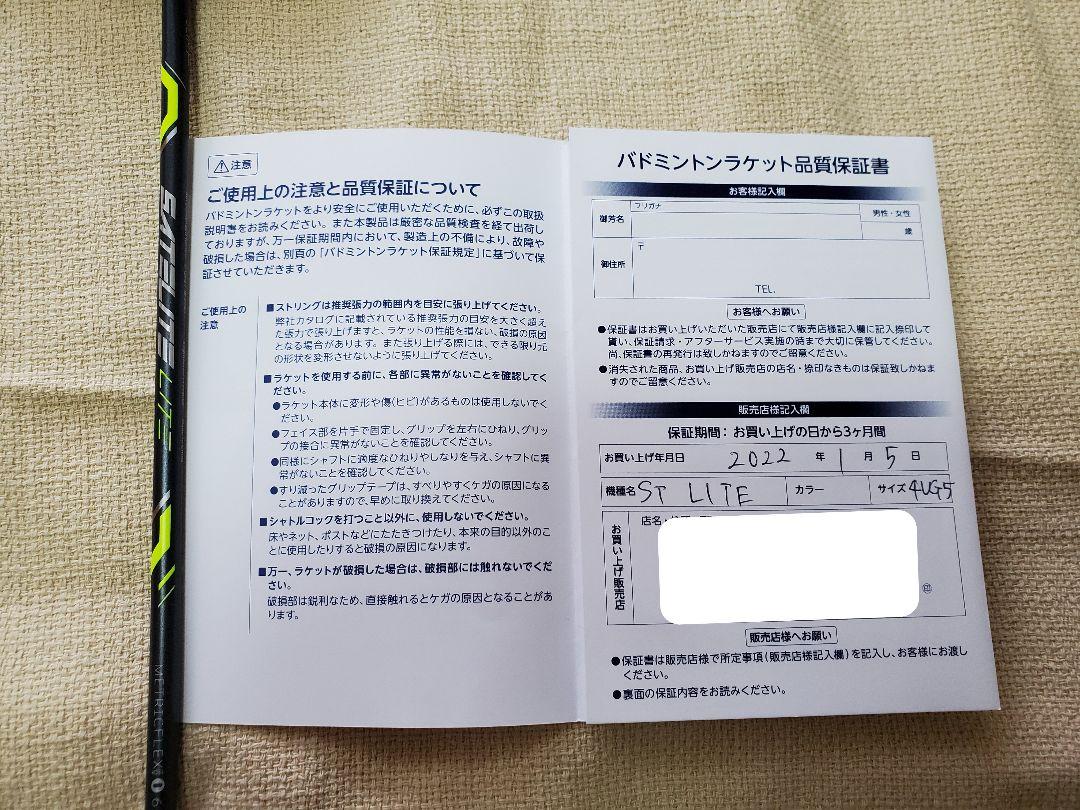 SATELITE LITE
METRICFLEX
注意
ご使用上の注意と品質保証について
バドミントンラケットをより安全にご使用いただくために、必ずこの取扱
説明書をお読みください。また本製品は厳密な品質検査を経て出荷し
ておりますが、万一保証期間内において、製造上の不備により、故障や
破損した場合は、別頁の「バドミントンラケット保証規定」に基づいて保
証させていただきます。
ご使用上の
注意
■ストリングは推奨張力の範囲内を目安に張り上げてください。
弊社カタログに記載されている推奨張力の目安を大きく超え
た張力で張り上げますと、ラケットの性能を損ない、破損の原因
となる場合があります。また張り上げる際には、できる限り元
の形状を変形させないように張り上げてください。
■ラケットを使用する前に、各部に異常がないことを確認してく
ださい。
●ラケット本体に変形や傷(ヒビ)があるものは使用しないでく
ださい。
●フェイス部を片手で固定し、グリップを左右にひねり、グリッ
プの接合に異常がないことを確認してください。
●同様にシャフトに適度なひねりやしなりを与え、シャフトに異
常がないことを確認してください。
●すり減ったグリップテープは、すべりやすくケガの原因になる
ことがありますので、早めに取り換えてください。
■シャトルコックを打つこと以外に、使用しないでください。
床やネット、ポストなどにたたきつけたり、本来の目的以外のこ
とに使用したりすると破損の原因になります。
■万一、ラケットが破損した場合は、破損部には触れないでくだ
さい。
破損部は鋭利なため、直接触れるとケガの原因となることがあ
ります。
バドミントンラケット品質保証書
お客様記入欄
御芳名 フリガナ 男性・女性
歳
御住所 〒
TEL.
お客様へお願い
●保証書はお買い上げいただいた販売店にて販売店様記入欄に記入捺印して
貰い、保証請求・アフターサービス実施の時まで大切に保管してください。
尚、保証書の再発行は致しかねますのでご留意ください。
●消失された商品、お買い上げ販売店の店名・捺印なきものは保証致しかねま
すのでご留意ください。
販売店様記入欄
保証期間：お買い上げの日から3ヶ月間
お買い上げ年月日 2022 年 1 月 5 日
機種名 ST LITE カラー サイズ 4UG5
お買い上げ販売店
店名・
印
販売店様へお願い
●保証書は販売店様で所定事項(販売店様記入欄)を記入し、お客様にお渡し
ください。
●裏面の保証内容をお読みください。